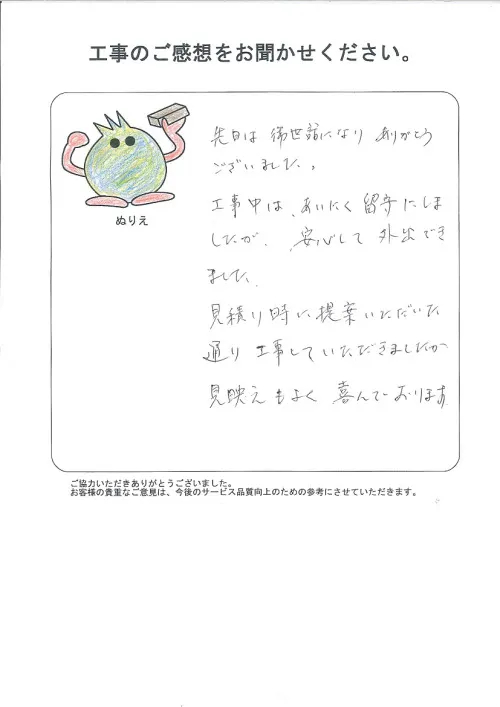 工事のご感想をお聞かせください。
ぬりえ
先日は 御世話になり ありがとう
ございました。
工事中は、あいにく 留守にしま
したが、安心して 外出でき
ました。
見積り時に 提案いただいた
通り 工事していただきましたが
見映えもよく 喜んでおります
ご協力いただきありがとうございました。
お客様の貴重なご意見は、今後のサービス品質向上のための参考にさせていただきます。